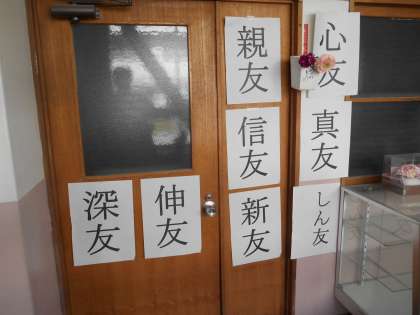 心友
親友
真友
信友
しん友
新友
伸友
深友